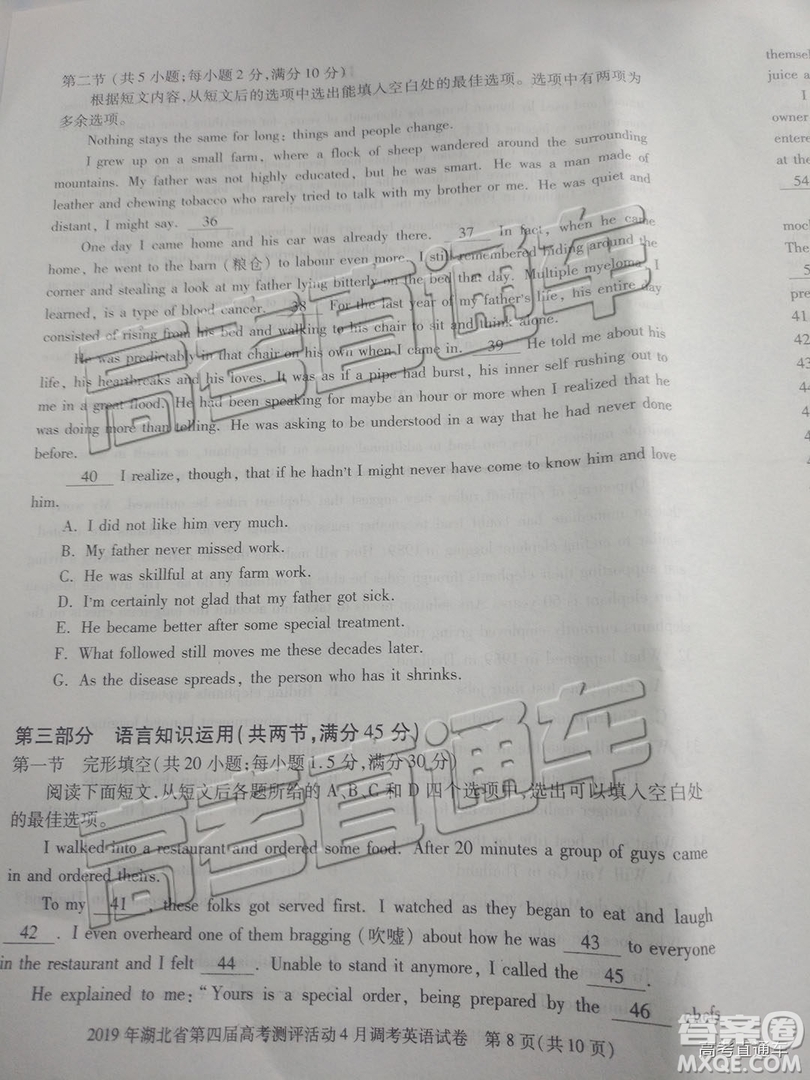 第二节 (共 5 小题;每小题 2 分,满分 10 分)
根据短文内容,从短文后的选项中选出能填入空白处的最佳选项。选项中有两项为
多余选项。
Nothing stays the same for long; things and people change.
I grew up on a small farm, where a flock of sheep wandered around the surrounding
mountains. My father was not highly educated, but he was smart. He was a man made of
leather and chewing tobacco who rarely tried to talk with my brother or me. He was quiet and
distant, I might say. 36
One day I came home and his car was already there. 37 In fact, when he came
home, he went to the barn (粮仓) to labour even more. I still remembered hiding around the
corner and stealing a look at my father lying bitterly on the bed that day. Multiple myeloma, I
learned, is a type of blood cancer. 38 For the last year of my father's life, his entire day
consisted of rising from his bed and walking to his chair to sit and think alone.
He was predictably in that chair on his own when I came in. 39 He told me about his
life, his heartbreaks and his loves. It was as if a pipe had burst, his inner self rushing out to
me in a great flood. He had been speaking for maybe an hour or more when I realized that he
was doing more than telling. He was asking to be understood in a way that he had never done
before.
40 I realize, though, that if he hadn't I might never have come to know him and love
him.
A. I did not like him very much.
B. My father never missed work.
C. He was skillful at any farm work.
D. I'm certainly not glad that my father got sick.
E. He became better after some special treatment.
F. What followed still moves me these decades later.
G. As the disease spreads, the person who has it shrinks.
第三部分 语言知识运用(共两节,满分 45 分)
第一节 完形填空(共 20 小题;每小题 1.5 分,满分 30 分)
阅读下面短文,从短文后各题所给的 A、B、C 和 D 四个选项中,选出可以填入空白处
的最佳选项。
I walked into a restaurant and ordered some food. After 20 minutes a group of guys came
in and ordered theirs.
To my 41 , these folks got served first. I watched as they began to eat and laugh
42 . I even overheard one of them bragging (吹嘘) about how he was 43 to everyone
in the restaurant and I felt 44 . Unable to stand it anymore, I called the 45 .
He explained to me: "Yours is a special order, being prepared by the 46 chefs
2019 年湖北省第四届高考测评活动 4 月调考英语试卷 第 8 页(共 10 页)
themsel
juice a
I
owner
entere
at the
54
mock
The
5
pre
41
42
43
44
高考直通车
高考直通车
答案卷
高考直通车